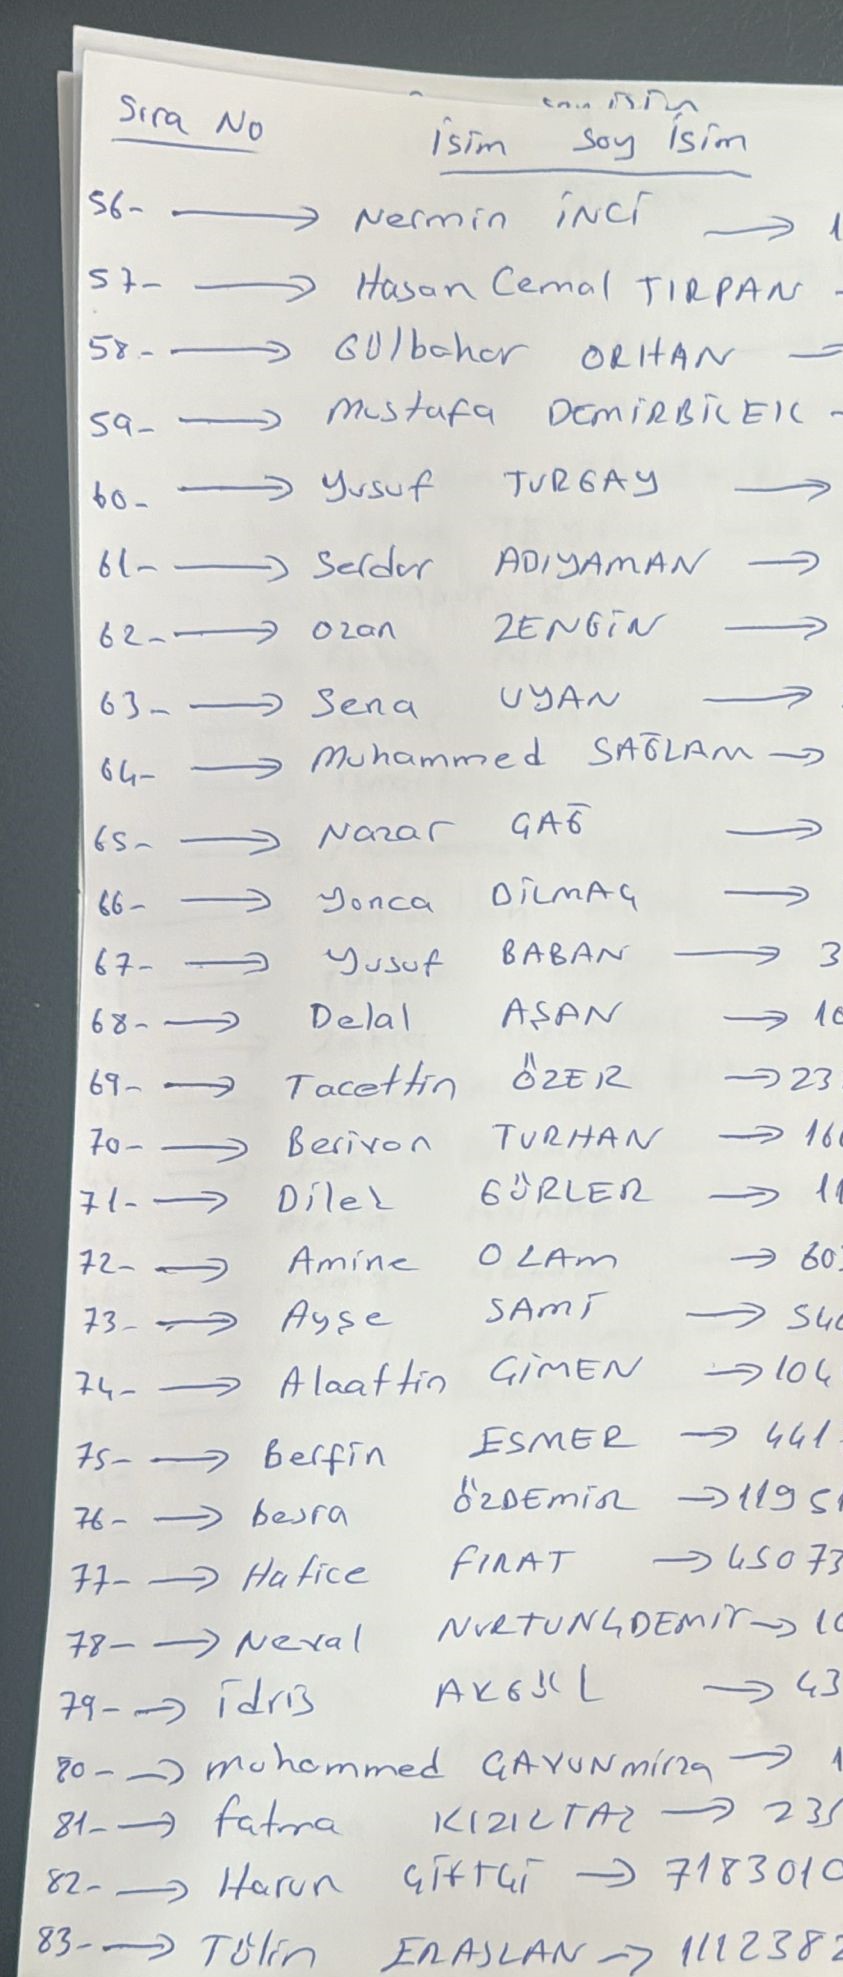 Sıra No
İsim Soy İsim
56- → Nermin İNCİ → 1
57- → Hasan Cemal TIRPAN -
58- → Gülbahar ORHAN →
59- → Mustafa DEMİRBİLEK -
60- → Yusuf TURGAY →
61- → Serdar ADIYAMAN →
62- → Ozan ZENGİN →
63- → Sena UYAN →
64- → Muhammed SAĞLAM →
65- → Nazar ÇAĞ →
66- → Yonca DİLMAÇ →
67- → Yusuf BABAN → 3
68- → Delal AŞAN → 10
69- → Tacettin ÖZER → 23
70- → Berivan TURHAN → 166
71- → Dilek GÜRLER → 11
72- → Amine OLAM → 60
73- → Ayşe SAMİ → 540
74- → Alaattin ÇİMEN → 104
75- → Berfin ESMER → 441
76- → besra ÖZDEMİR → 11951
77- → Hatice FIRAT → 45073
78- → Neval NURTUNÇDEMİR → 10
79- → İdris AKGÜL → 43
80- → Muhammed → 1
81- → Fatma KIZILTAŞ → 235
82- → Harun ÇİFTÇİ → 7183010
83- → Tülin ERASLAN → 1112382